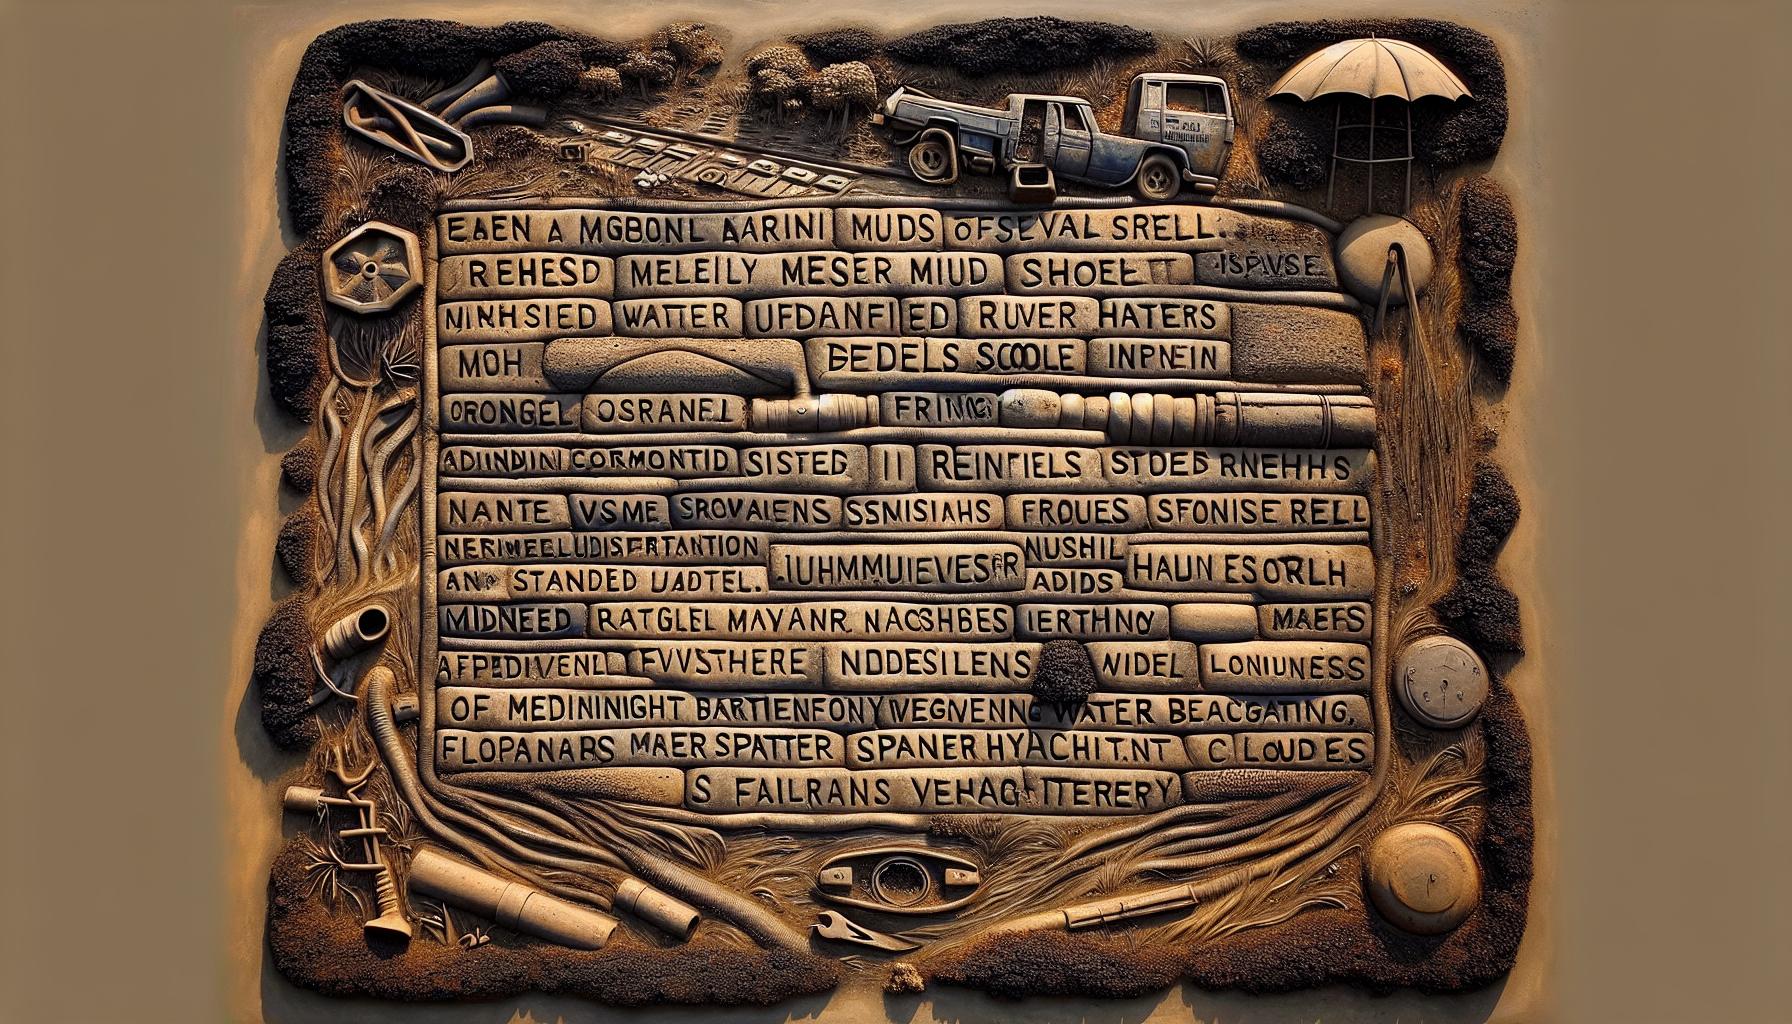 EAEN A MGBONL AARINI MUDS OFSEVAL SRELL.
REHESD MELEILY MESER MIUD SHOE
WATTER UFDANFIED RUVER HATERS
MOH BEDELS SCOOLE INPNEIN
ORONGEL OSRANEL FRING
CORMONTID SISTEG II REINFIELS STOEB RNEHHS
NANTE VSME SROVALENS SSNISIAHS FROUES SFONISE RELL
NUSHIL
STANDED UADTEL. ADIDS HAUN ESORLH
MIDNEED RATGLEL MAYANR NACSHBES IERTHNO MAEFS
FVVSTHERE NDDESILENS WIDEL LONIUNESS
OF MEDINNIGHT BARTIENFONY VEGNENNG WATER BEACGATING,
FLOPANARS MAER SPATTER SPANER HYACHIT.NT CLOUDES
S FAILRANS VEHAG ITERERY